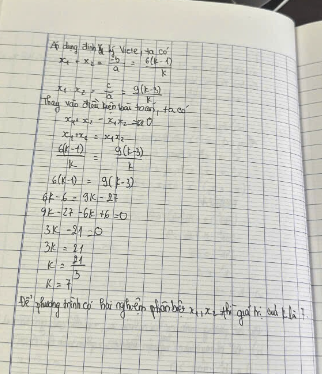 Áp dụng định lý Viete, ta có
x₁ + x₂ = -b/a = 6(k-1)/k
x₁ x₂ = c/a = 9(k-3)/k
Thay vào điều kiện bài toán, ta có
x₁ + x₂ - x₁x₂ = 0
x₁ + x₂ = x₁x₂
6(k-1)/k = 9(k-3)/k
6(k-1) = 9(k-3)
6k - 6 = 9k - 27
9k - 27 - 6k + 6 = 0
3k - 21 = 0
3k = 21
k = 21/3
k = 7
Để phương trình có hai nghiệm phân biệt x₁, x₂ thì giá trị của k là ?